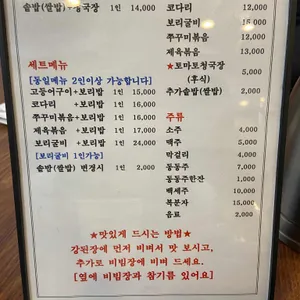 솥밥(쌀밥)+청국장 1인 14,000
세트메뉴
[동일메뉴 2인이상 가능합니다]
고등어구이+보리밥 1인 15,000
코다리 +보리밥 1인 16,000
쭈꾸미볶음+보리밥 1인 16,000
제육볶음 +보리밥 1인 17,000
보리굴비 +보리밥 1인 24,000
[보리굴비 1인가능]
솥밥(쌀밥) 변경시 1인 2,000
코다리 12,000
보리굴비
쭈꾸미볶음 12,000
제육볶음 13,000
★토마토청국장 5,000
(후식)
추가솥밥(쌀밥) 2,000
주류
소주 4,000
맥주 5,000
막걸리 4,000
동동주 7,000
동동주한잔 1,000
백세주 10,000
복분자 15,000
음료 2,000
★맛있게 드시는 방법★
강된장에 먼저 비벼서 맛 보시고,
추가로 비빔장에 비벼 드세요.
[옆에 비빔장과 참기름 있어요]